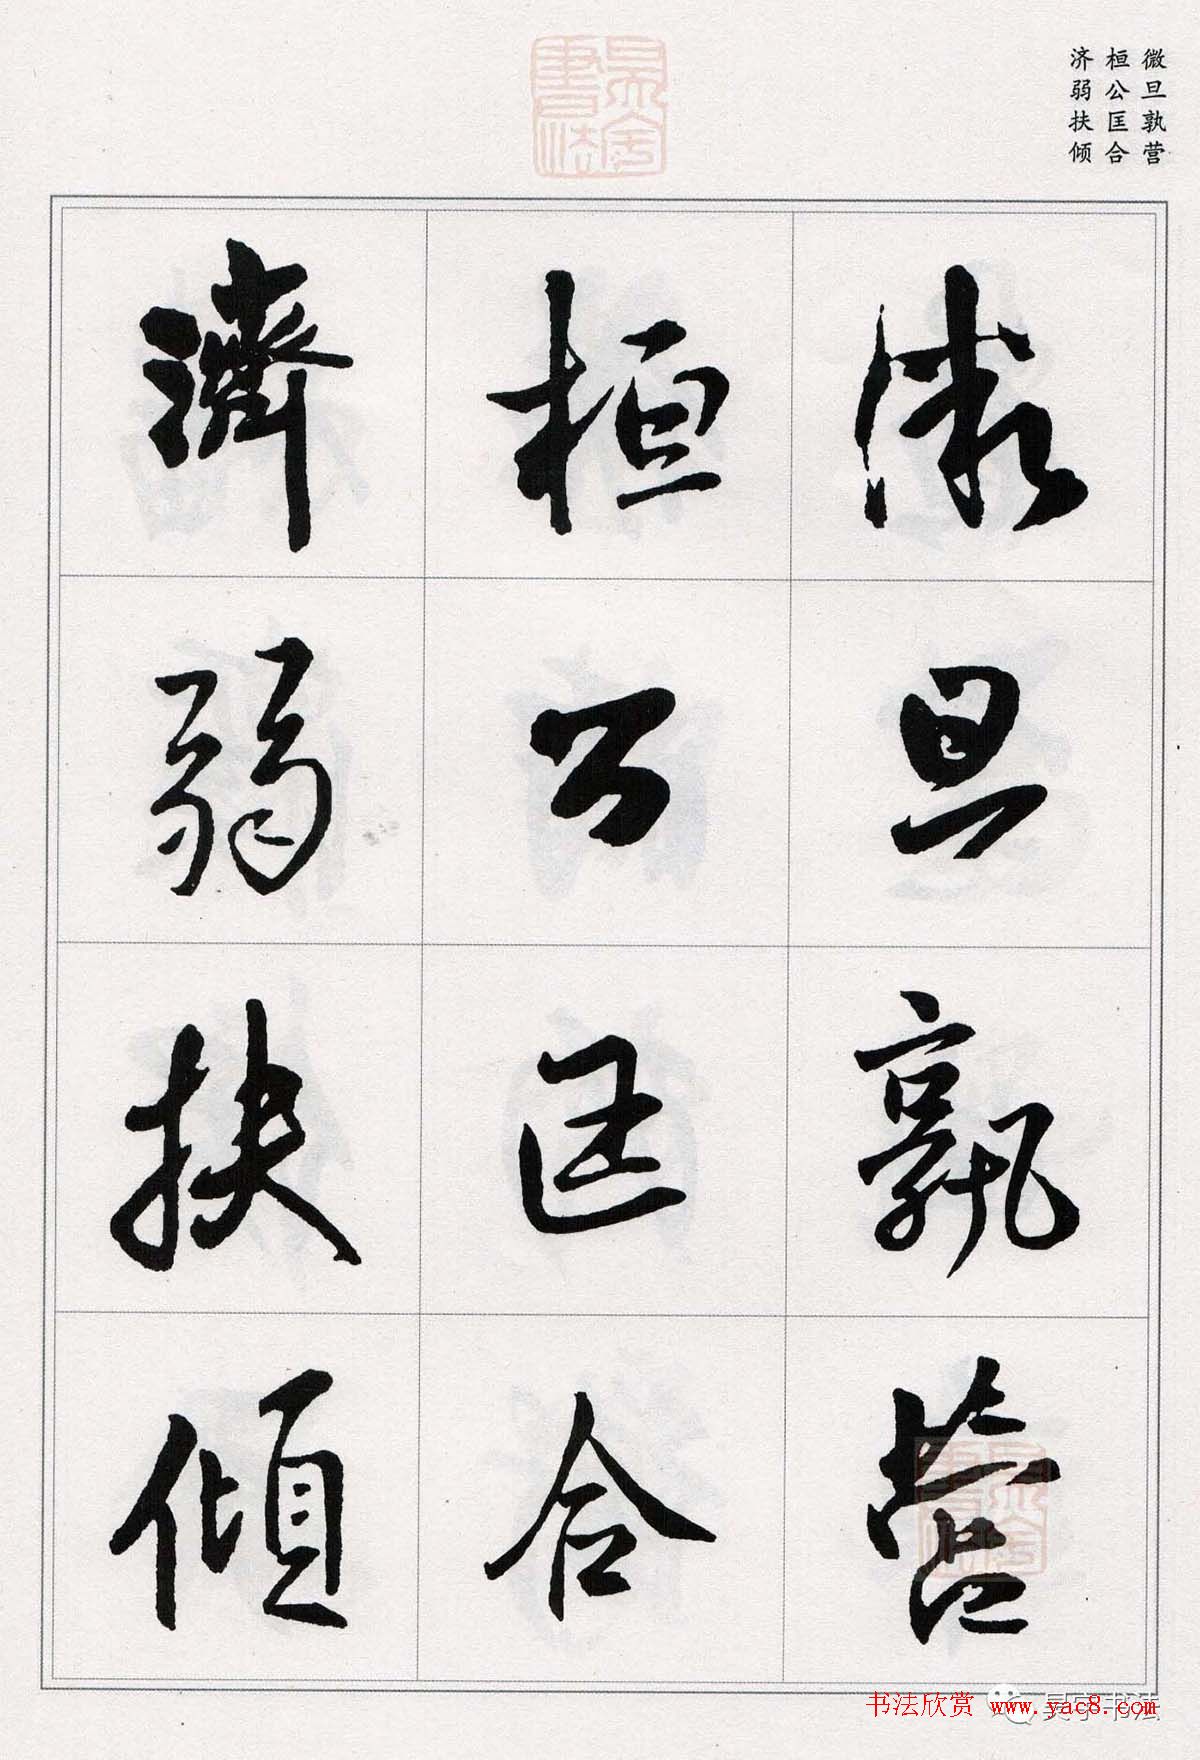 微旦孰营
桓公匡合
济弱扶倾
微旦孰營
桓公匡合
濟弱扶傾
书法欣赏 www.yac8.com